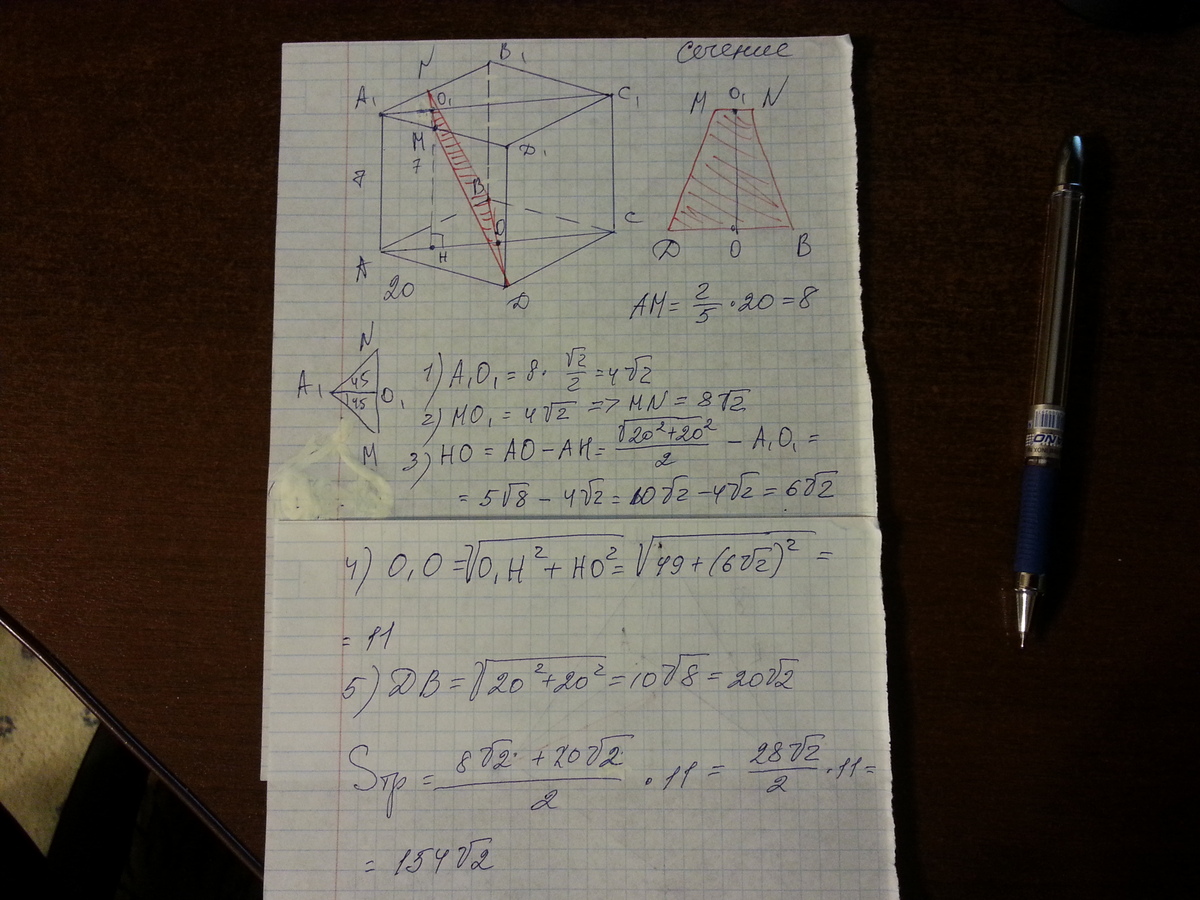 сечение
N B₁
A₁ O₁ C₁
M D₁
7 7
B
O C
A H
20 D
M O₁ N
D O B
AM = 2/5 · 20 = 8
N
A₁ 45 45 O₁
M
1) A₁O₁ = 8 · √2/2 = 4√2
2) MO₁ = 4√2 => MN = 8√2
3) HO = AO - AH = √(20² + 20²)/2 - A₁O₁ =
= 5√8 - 4√2 = 10√2 - 4√2 = 6√2
4) O₁O = √(O₁H² + HO²) = √(49 + (6√2)²) =
= 11
5) DB = √(20² + 20²) = 10√8 = 20√2
Sтр = (8√2 + 20√2)/2 · 11 = 28√2/2 · 11 =
= 154√2